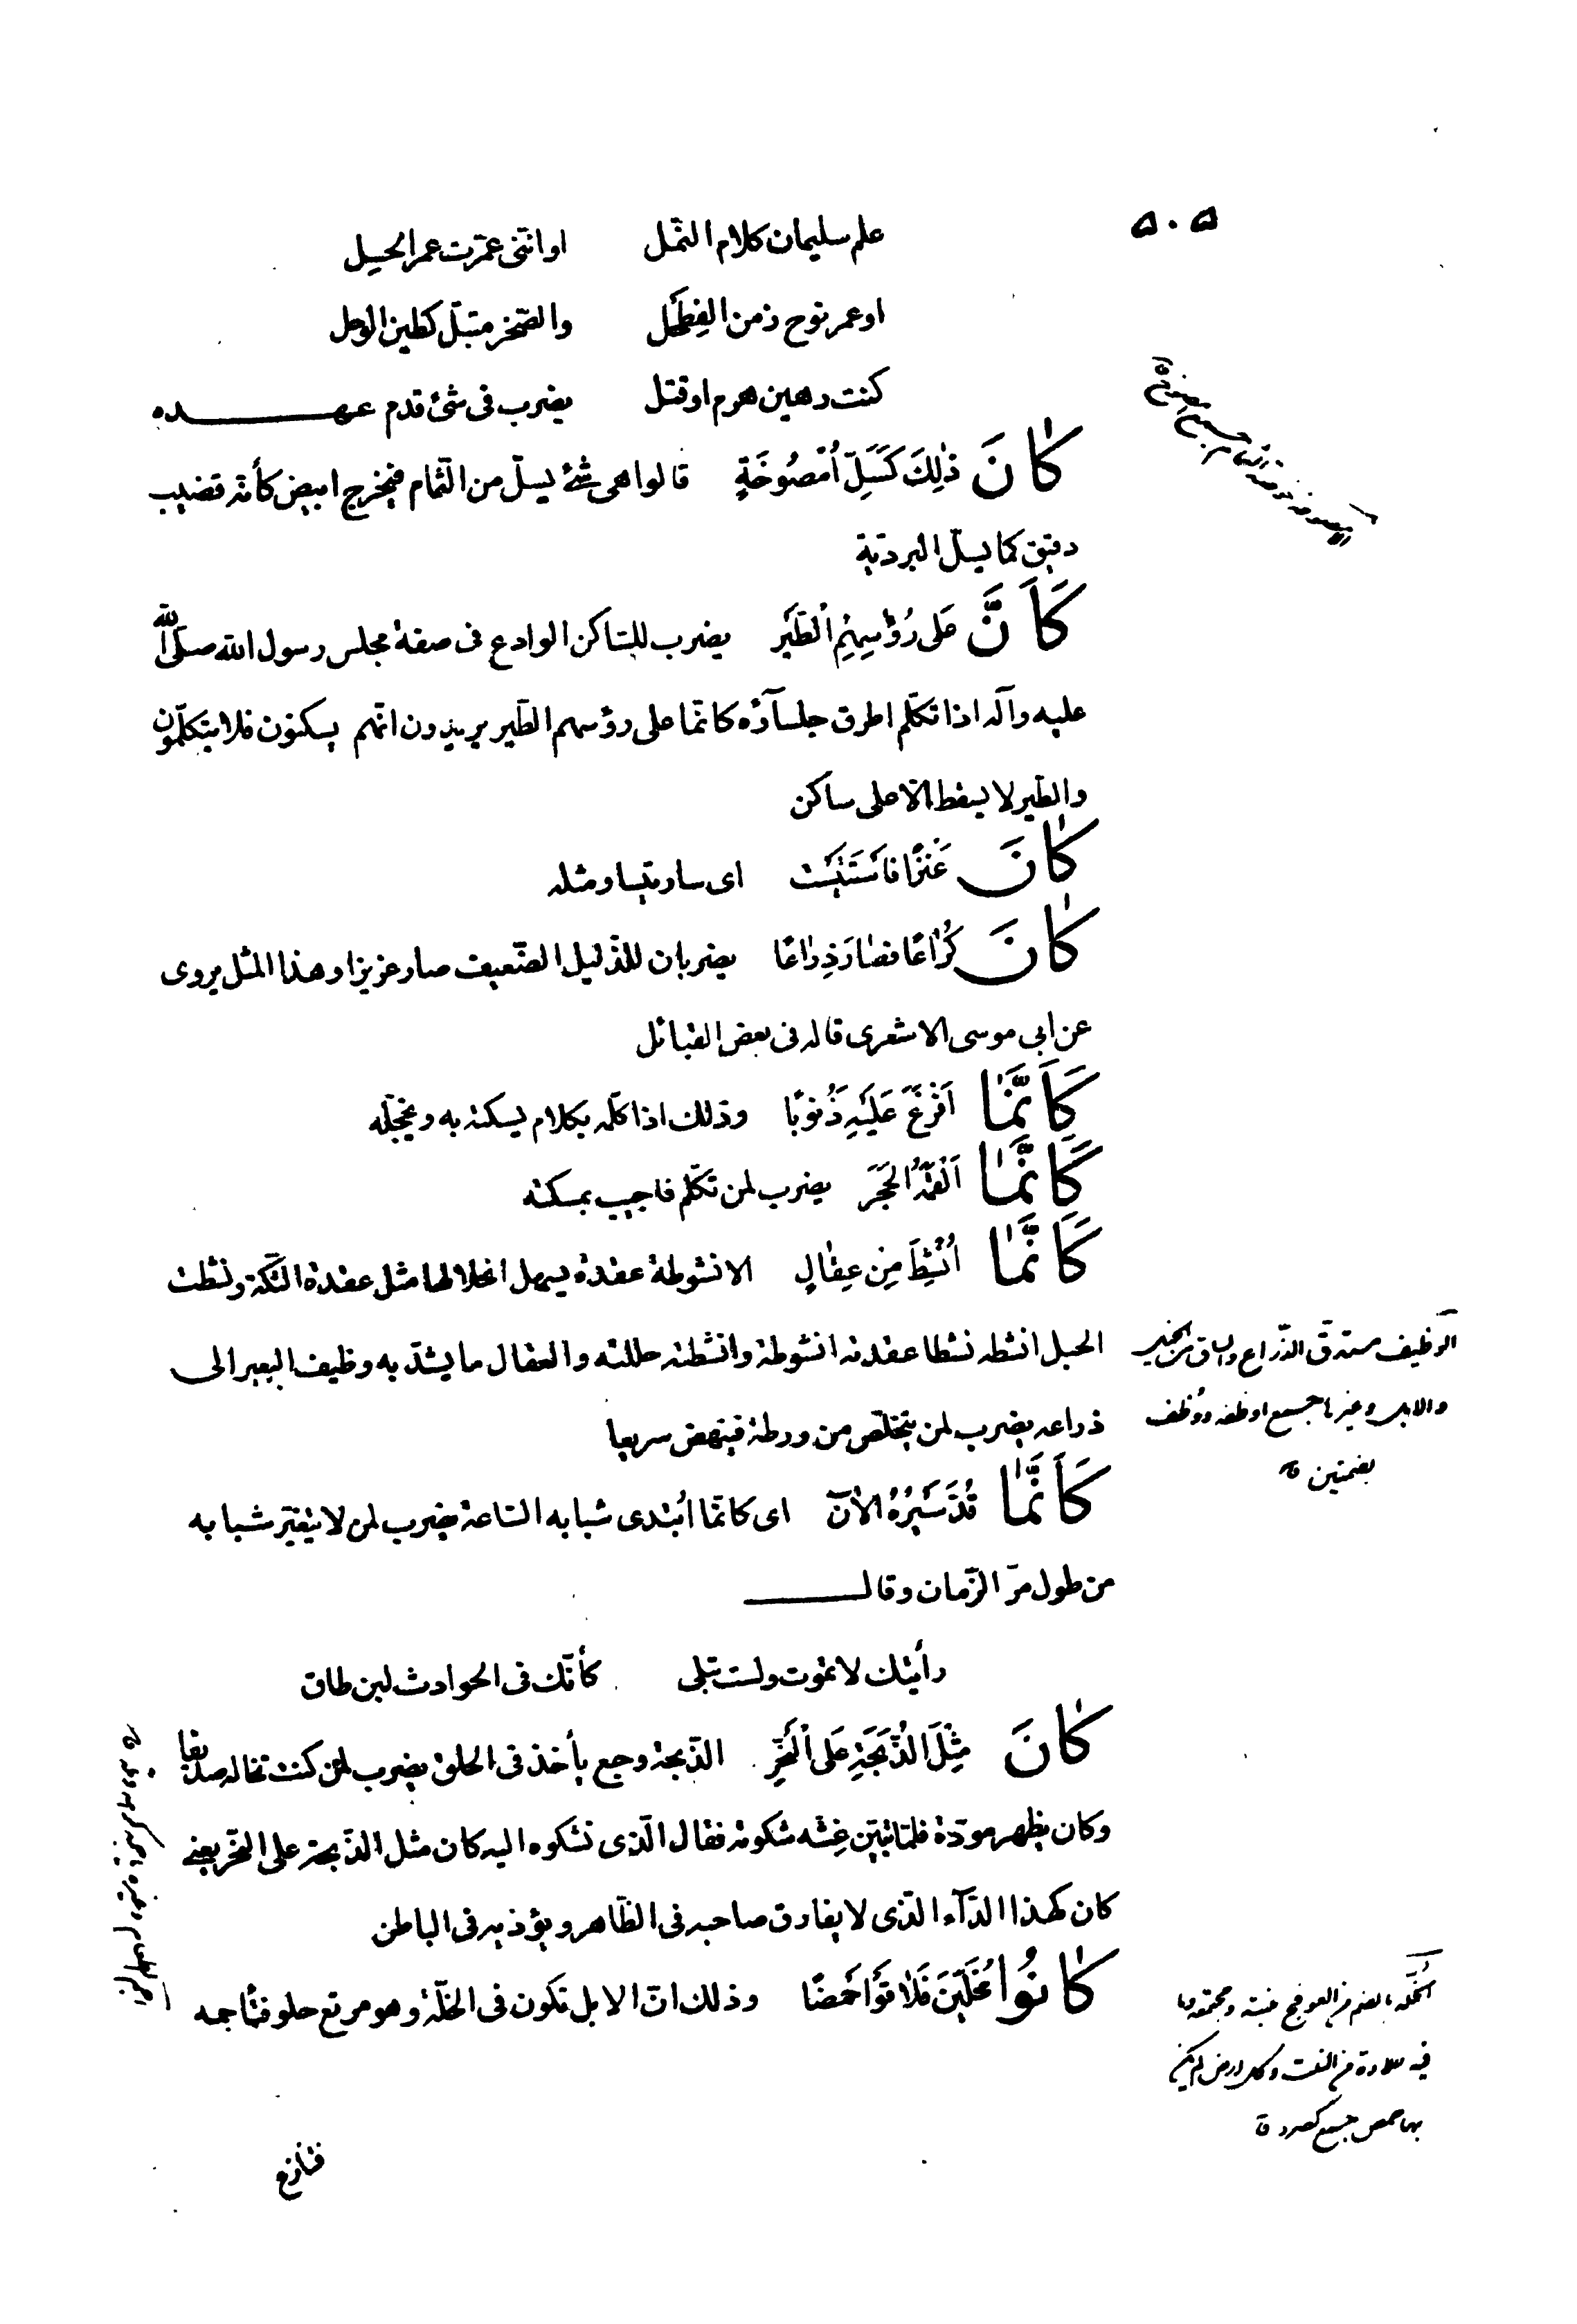 ۵۰۵
علم سليمان كلام النّمل اوانّنى عمّرت عمر الحسل
او عمر نوح زمن الفِطَحْل والصّخر مبتلّ كطين الوحل
كنت رهين هرم او قتل يضرب فى شئ قدم عهده
كٰانَ ذٰلِكَ كَسَلِّ اُمْصُوخَةٍ قالوا هى شئ يسلّ من الثّمام فيخرج ابيض كأنّه قضيب
دقيق كما يسلّ البرديّة
كَاَنَّ عَلى رُؤسِهِمِ الْطَّيْر يضرب للسّاكن الوادع فى صفة مجلس رسول الله صلّى الله
عليه وآله اذا تكلّم اطرق جلساؤه كانّما على رؤسهم الطّير يريدون انّهم يسكنون فلا يتكلّمون
والطّير لا يسقط الّا على ساكن
كٰانَ عَنْزًا فَاسْتَتْيَسَتْ اى صار تيسا ومثله
كٰانَ كُرٰاعًا فصٰارَ ذِرٰاعًا يضربان للذّليل الضّعيف صار عزيزا وهذا المثل يروى
عن ابى موسى الاشعرى قاله فى بعض القبائل
كَاَنَّمٰا اَفْرَغَ عَلَيْهِ ذَنُوبًا وذلك اذا كلّمه بكلام يسكته به ويخجّله
كَاَنَّمٰا اَلْقَمَهُ الْحَجَرَ يضرب لمن تكلّم فاجيب بمسكتة
كَاَنَّمٰا اُنْشِطَ مِنْ عِقٰالٍ الانشوطة عقدة يسهل انحلالها مثل عقدة التّكّة ونشطت
الحبل انشطه نشطا عقدته انشوطة وانشطته حللته والعقال ما يشدّ به وظيف البعير الى
ذراعه يضرب لمن يتخلّص من ورطة فينهض سريعا
الوظيف مستدقّ الذّراع والساق من الخيل
والابل وغيرها جمع اوظفه ووُظُف
بضمتين ق
كَاَنَّمٰا قُدَّ سَيْرُهُ الْاٰنَ اى كانّما ابتدى شبابه السّاعة يضرب لمن لا يتغيّر شبابه
من طول مرّ الزّمان وقال
رأيتك لا تموت ولست تبلى كأنّك فى الحوادث لبن طاق
كٰانَ مِثْلَ الذُّبَحَةِ عَلَى الْنَّحْرِ الذّبحة وجع يأخذ فى الحلق يضرب لمن كنت تخاله صديقا
وكان يظهر مودّة فلمّا تبيّن غِشّه شكوته فقال الّذى تشكوه اليه كان مثل الذّبحة على النّحر يعنى
كان كهذا الدّاء الّذى لا يفارق صاحبه فى الظّاهر ويؤذيه فى الباطن
كٰانُوا مُخِلّينَ فَلٰاقَوْا حَمْضًا وذلك انّ الابل تكون فى الخلّة وهو مرتع حلو فتأجمه
الخُلّة بالضم من العرفج منبته ومجتمعه وما
فيه حلاوة من النبت وكل ارض لم يكن
بها حمض جمع كصرد ق
فتنازع